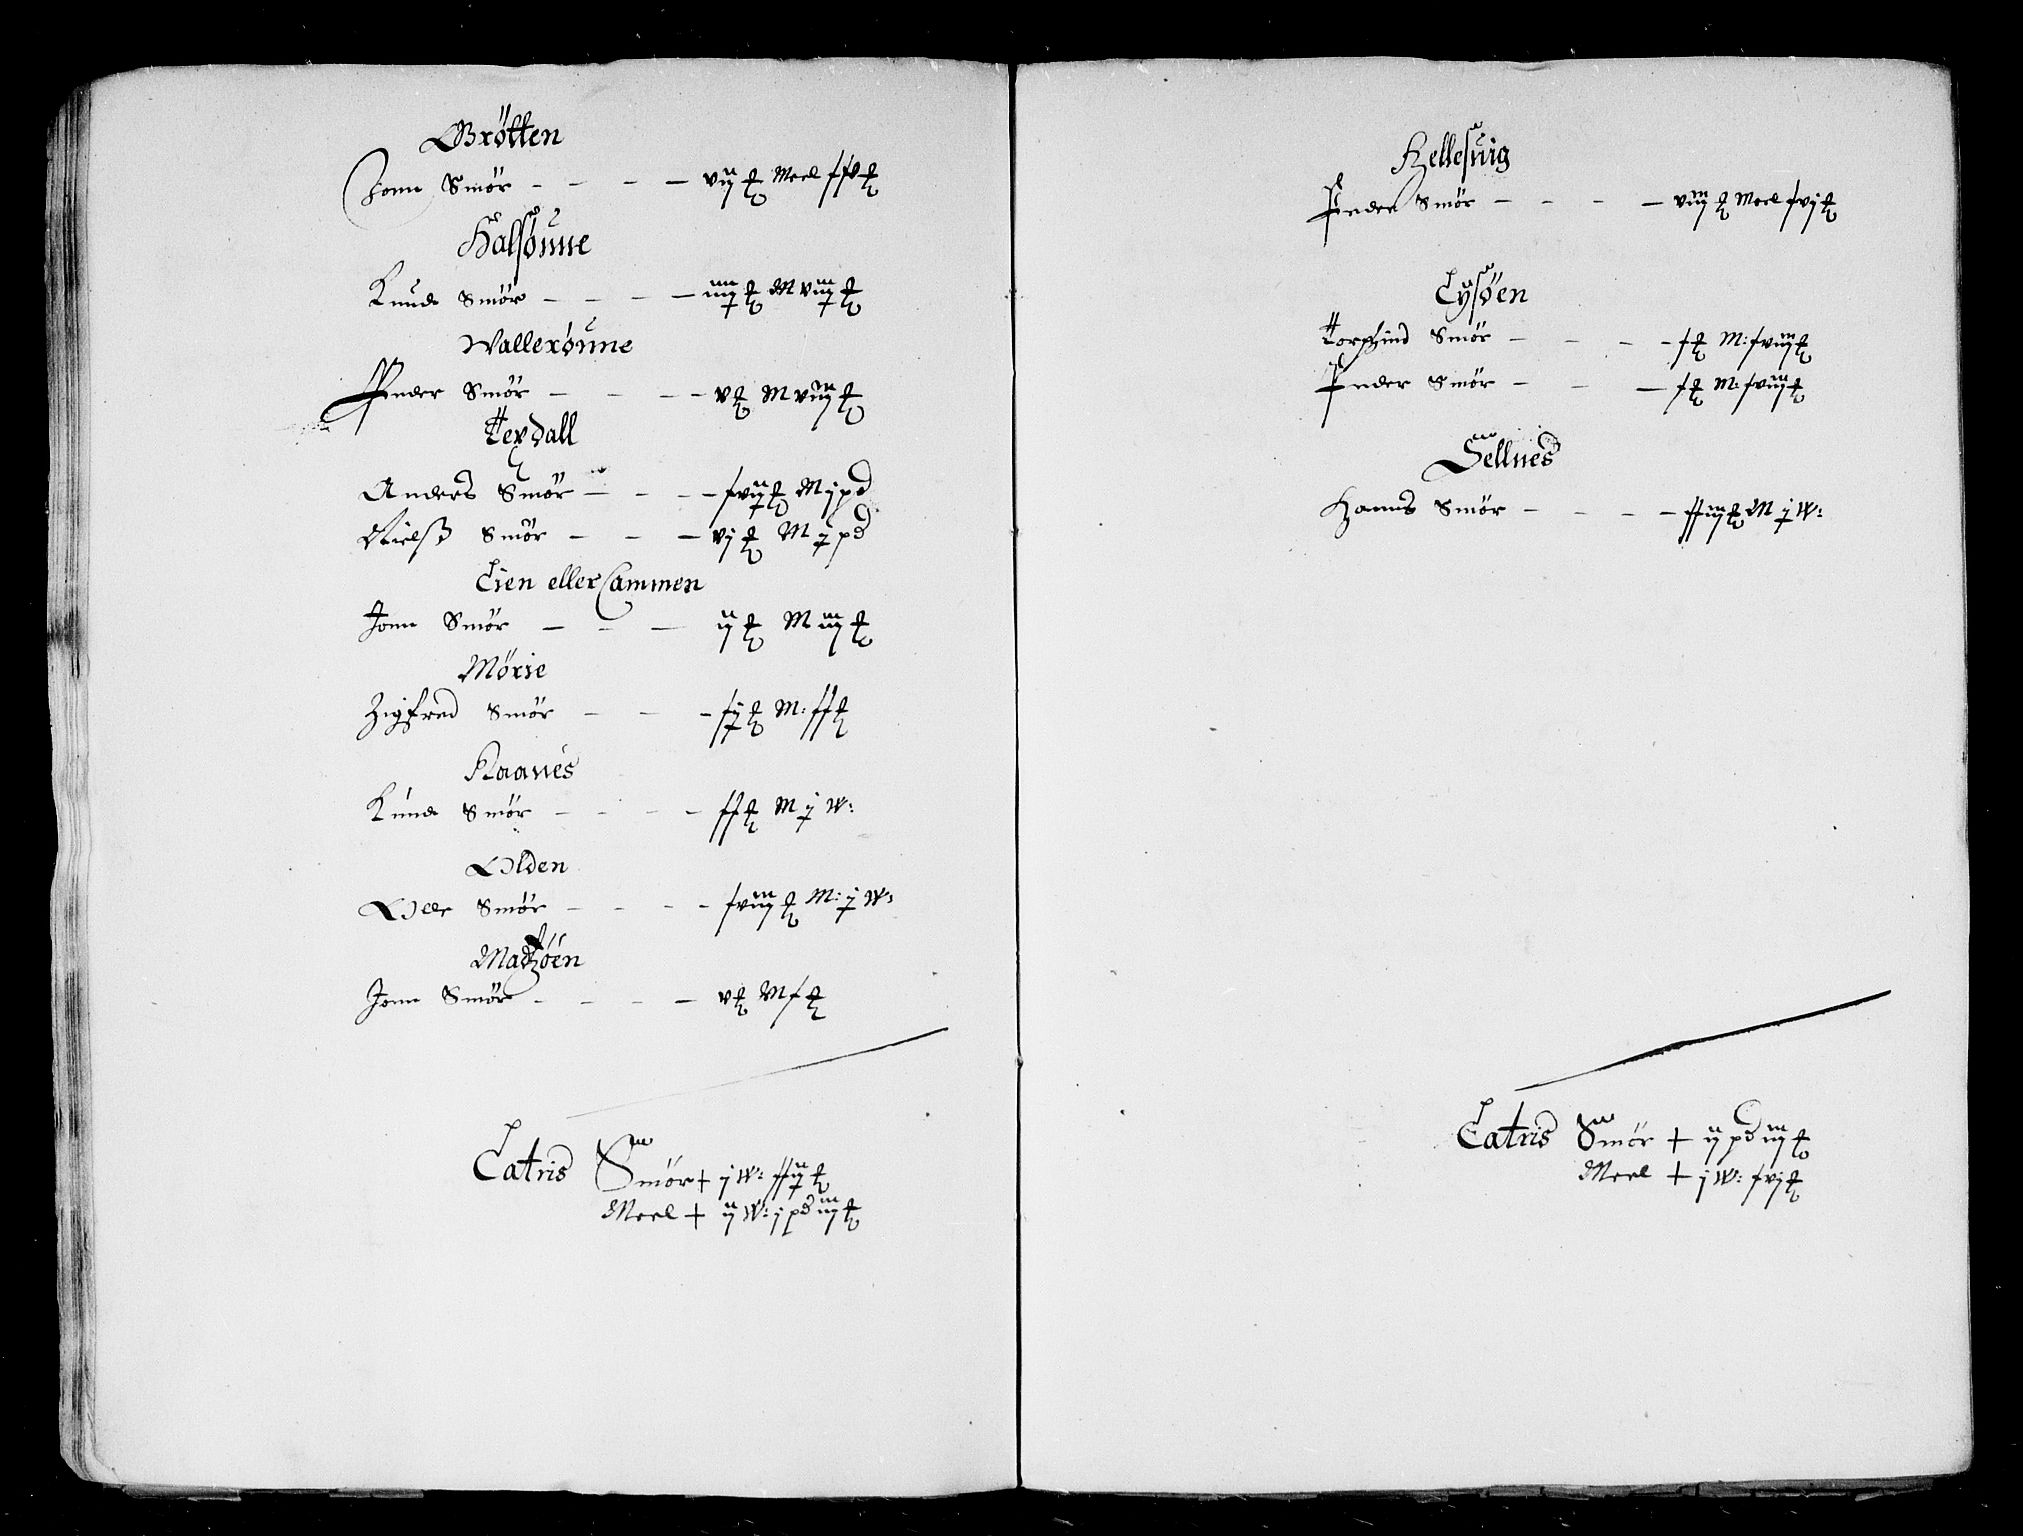 Brötten
Jonn Smör - - - - vij ℔ Meel xxv ℔
Halsønne
Knud Smör - - - - iiij ℔ M viij ℔
Wallerønne
Peder Smör - - - - v ℔ M viij ℔
Terdall
Anders Smör - - - - xvij ℔ M j pd
Nielß Smör - - - vj ℔ M j pd
Lien eller Lammen
Jonn Smör - - - ij ℔ M iij ℔
Mörie
Zigfred Smör - - - xj ℔ M: xx ℔
Raanes
Knud Smör - - - - xx ℔ M j W:
Olden
Olle Smör - - - - xviij ℔ M: j W:
Madzöen
Jonn Smör - - - - v ℔ M x ℔
Latris Smör + j W: xxij ℔
Meel + ij W: j pd iij ℔
Hellesuig
Peder Smör - - - - viij ℔ Meel xvj ℔
Lysöen
Torchind Smör - - - - x ℔ M: xviij ℔
Peder Smör - - - x ℔ M: xviij ℔
Sellnes
Hanns Smör - - - - xxiij ℔ M j W:
Latris Smör + ij pd iij ℔
Meel + j W: xvj ℔